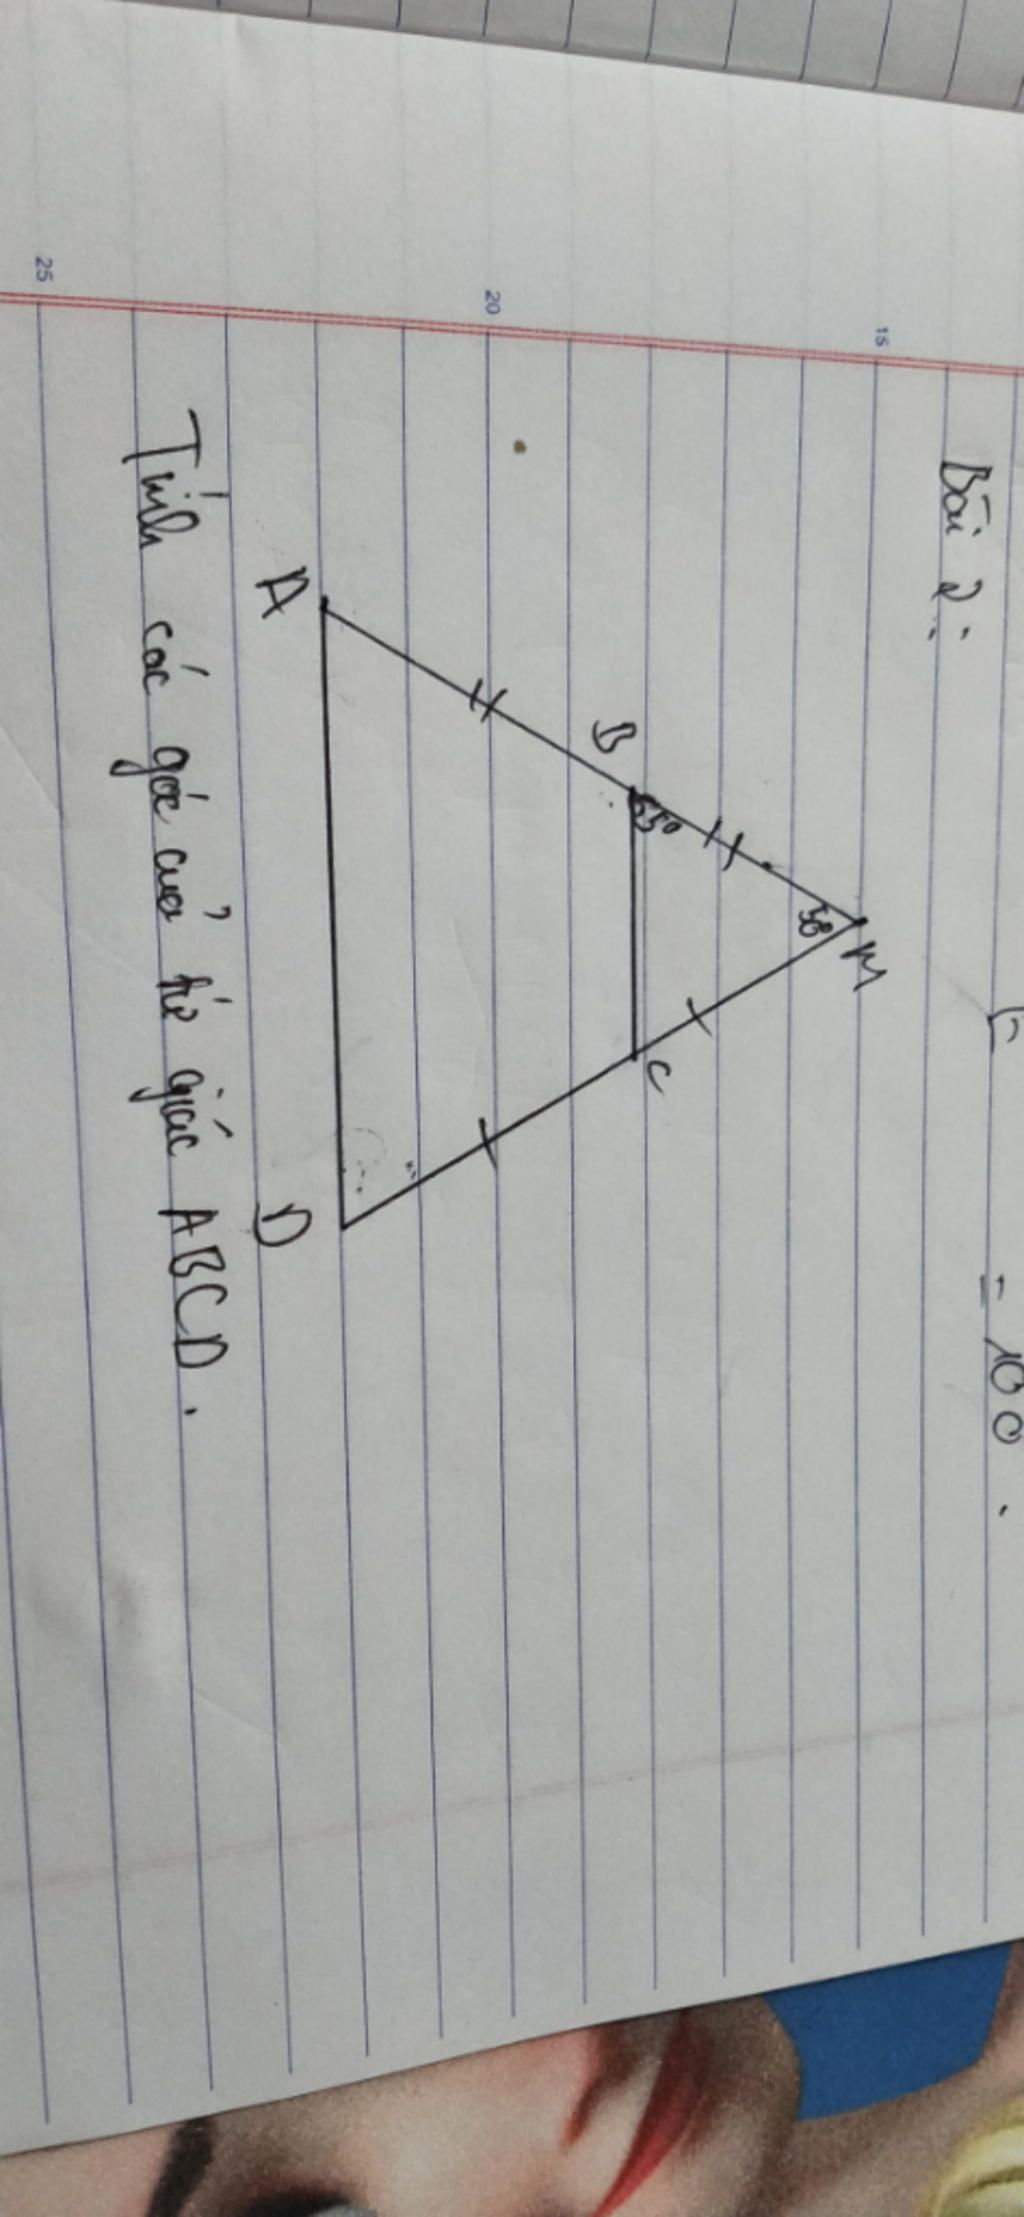 = 100.
Bài 2:
M
50°
65°
B
C
A
D
Tính các góc của tứ giác ABCD.
15
20
25